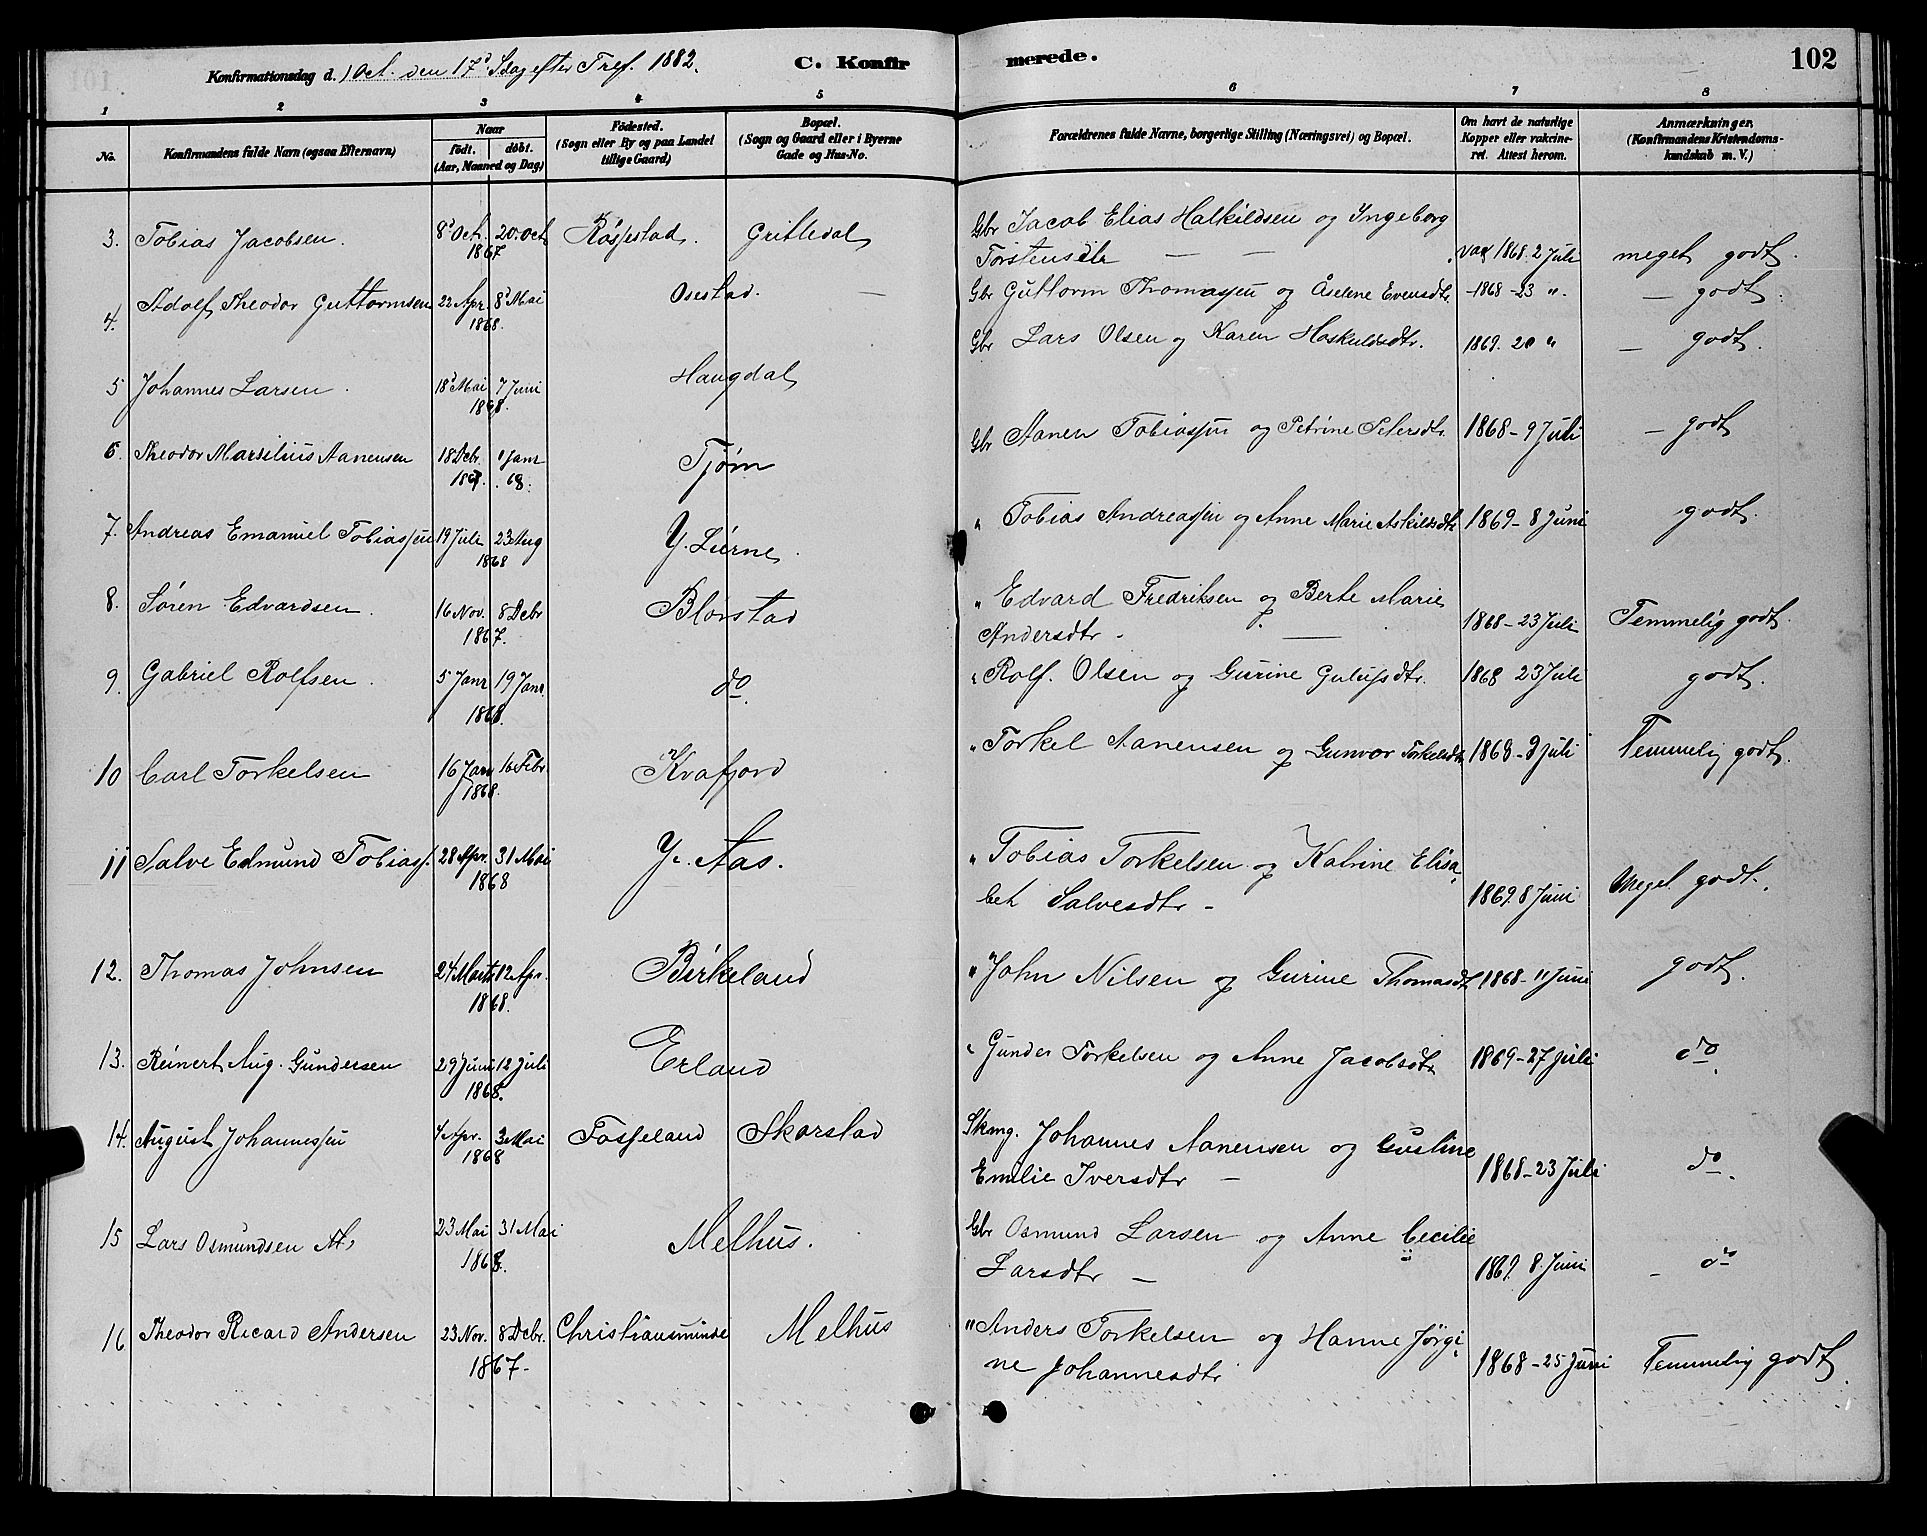 Konfirmationsdag d. 1 Oct. den 17d Sdag efter Tref. 1882.
C. Konfirmerede.
102
1 2 3 4 5 6 7 8
No.
Konfirmandens fulde Navn (ogsaa Efternavn)
Naar
födt. döbt.
(Aar, Maaned og Dag)
Födested.
(Sogn eller By og paa Landet
tillige Gaard)
Bopæl.
(Sogn og Gaard eller i Byerne
Gade og Hus-No.
Forældrenes fulde Navne, borgerlige Stilling (Næringsvei) og Bopæl.
Om havt de naturlige
Kopper eller vakcine-
ret. Attest herom.
Anmærkninger.
(Konfirmandens Kristendoms-
kundskab m. V.)
3. Tobias Jacobsen. 8d Oct. 20. Oct 1867 Kossestad. Gritledal Gbr Jacob Elias Halkildsen og Ingeborg
Torstensdtr — — vax 1868. 2 Juli meget godt.
4. Adolf Theodor Guttormsen 22 Apr. 8d Mai 1868. Osestad. — Gbr Guttorm Thomassen og Åselene Evensdtr. -1868-23 ". — godt.
5 Johannes Larsen. 18d Mai 7 Juni 1868. Haugdal Gbr Lars Olsen og Karen Haskildsdtr. 1869. 20 " — godt.
6. Theodor Marsilius Aanensen 18 Debr. 1867. 1 Janr 68. Tjøm Gbr Aanen Tobiassen og Petrine Petersdtr 1868-9 Juli — godt
7. Andreas Emanuel Tobiassen 19 Juli 23 Aug 1868 Y. Lierne. " Tobias Andreassen og Anne Marie Askildsdtr 1869-8 Juni godt.
8. Søren Edvardsen. 16 Nov. 8 Debr 1867. Blørstad " Edvard Fredriksen og Berte Marie
Andersdtr. — 1868-23 Juli Temmelig godt.
9. Gabriel Rolfsen. 5 Janr 19 Janr. 1868. do " Rolf. Olsen og Gurine Gulufsdtr. 1868 23 Juli godt.
10 Carl Torkelsen 16 Janr 16 Febr. 1868. Kvafjord " Torkel Aanensen og Gunvor Torkelsdtr 1868-9 Juli Temmelig godt.
11 Salve Edmund Tobiass. 28 Apr. 31 Mai 1868 Y. Aas. " Tobias Torkelsen og Katrine Elisa-
bet Salvesdtr - 1869. 8 Juni Meget godt.
12. Thomas Johnsen 24 Marts 12 Apr. 1868. Birkeland " John Nilsen og Gurine Thomasdtr 1868-11 Juni godt.
13. Reinert Aug. Gundersen 29 Juni 12 Juli 1868. Erland " Gunder Torkelsen og Anne Jacobsdtr 1869-27 Juli do.
14. August Johannessen 4 Apr. 3 Mai 1868 Fosseland Skarstad Skmg. Johannes Aanensen og Gustine
Emilie Iversdtr — 1868-23 Juli do.
15 Lars Osmundsen M. 23 Mai 31 Mai 1868. Melhus. Gbr Osmund Larsen og Anne Cecilie
Larsdtr — 1869. 8. Juni — do
16 Theodor Ricard Andersen 23 Nov. 8 Debr. 1867. Christiansminde Melhus " Anders Torkelsen og Hanne Jørgi-
ne Johannesdtr 1868-25 Juni Temmelig godt.